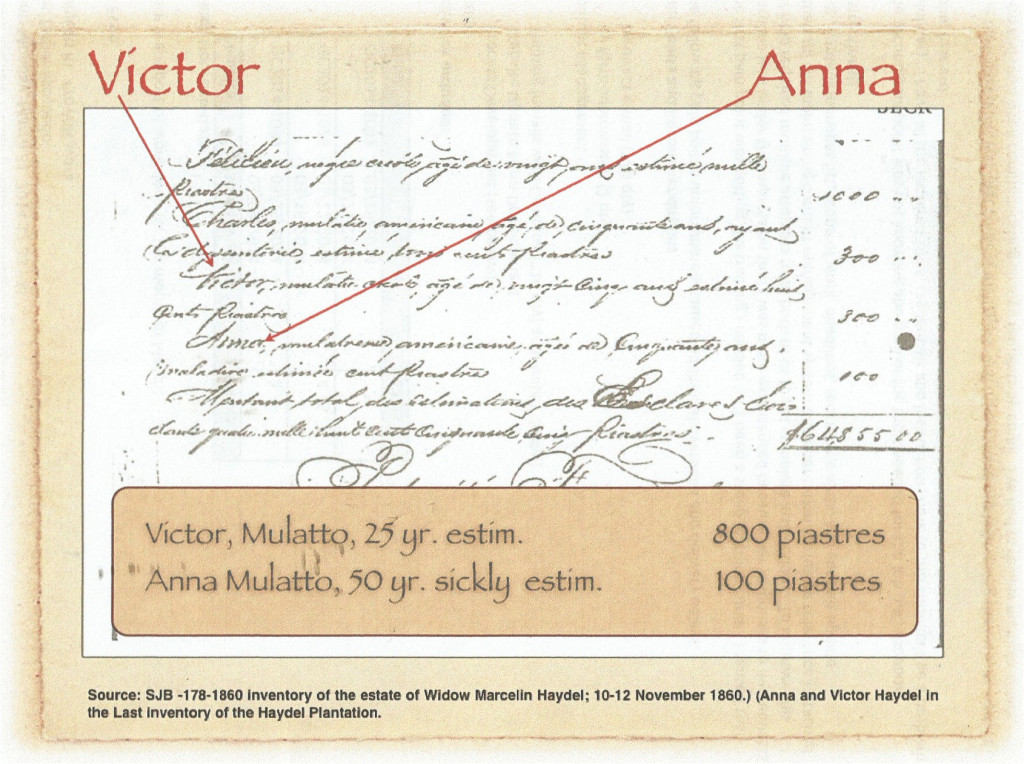 Victor Anna
SECR
Félicien, nègre créole, agé de vingt ans estimé mille
Piastres 1000 " "
Charles, mulatre américain agé de cinquante ans, ayant
estimé trois cent Piastres 300 " "
Victor, mulatre créole, agé de vingt cinq ans estimé huit
cents Piastres 800 " "
Anna, mulatresse américaine, agée de Cinquante ans,
maladive estimée cent Piastres 100
Montant total des estimations des Esclaves Soix-
ante quatre mille huit Cent Cinquante Cinq Piastres $64855 00
Victor, Mulatto, 25 yr. estim. 800 piastres
Anna Mulatto, 50 yr. sickly estim. 100 piastres
Source: SJB -178-1860 inventory of the estate of Widow Marcelin Haydel; 10-12 November 1860.) (Anna and Victor Haydel in
the Last inventory of the Haydel Plantation.